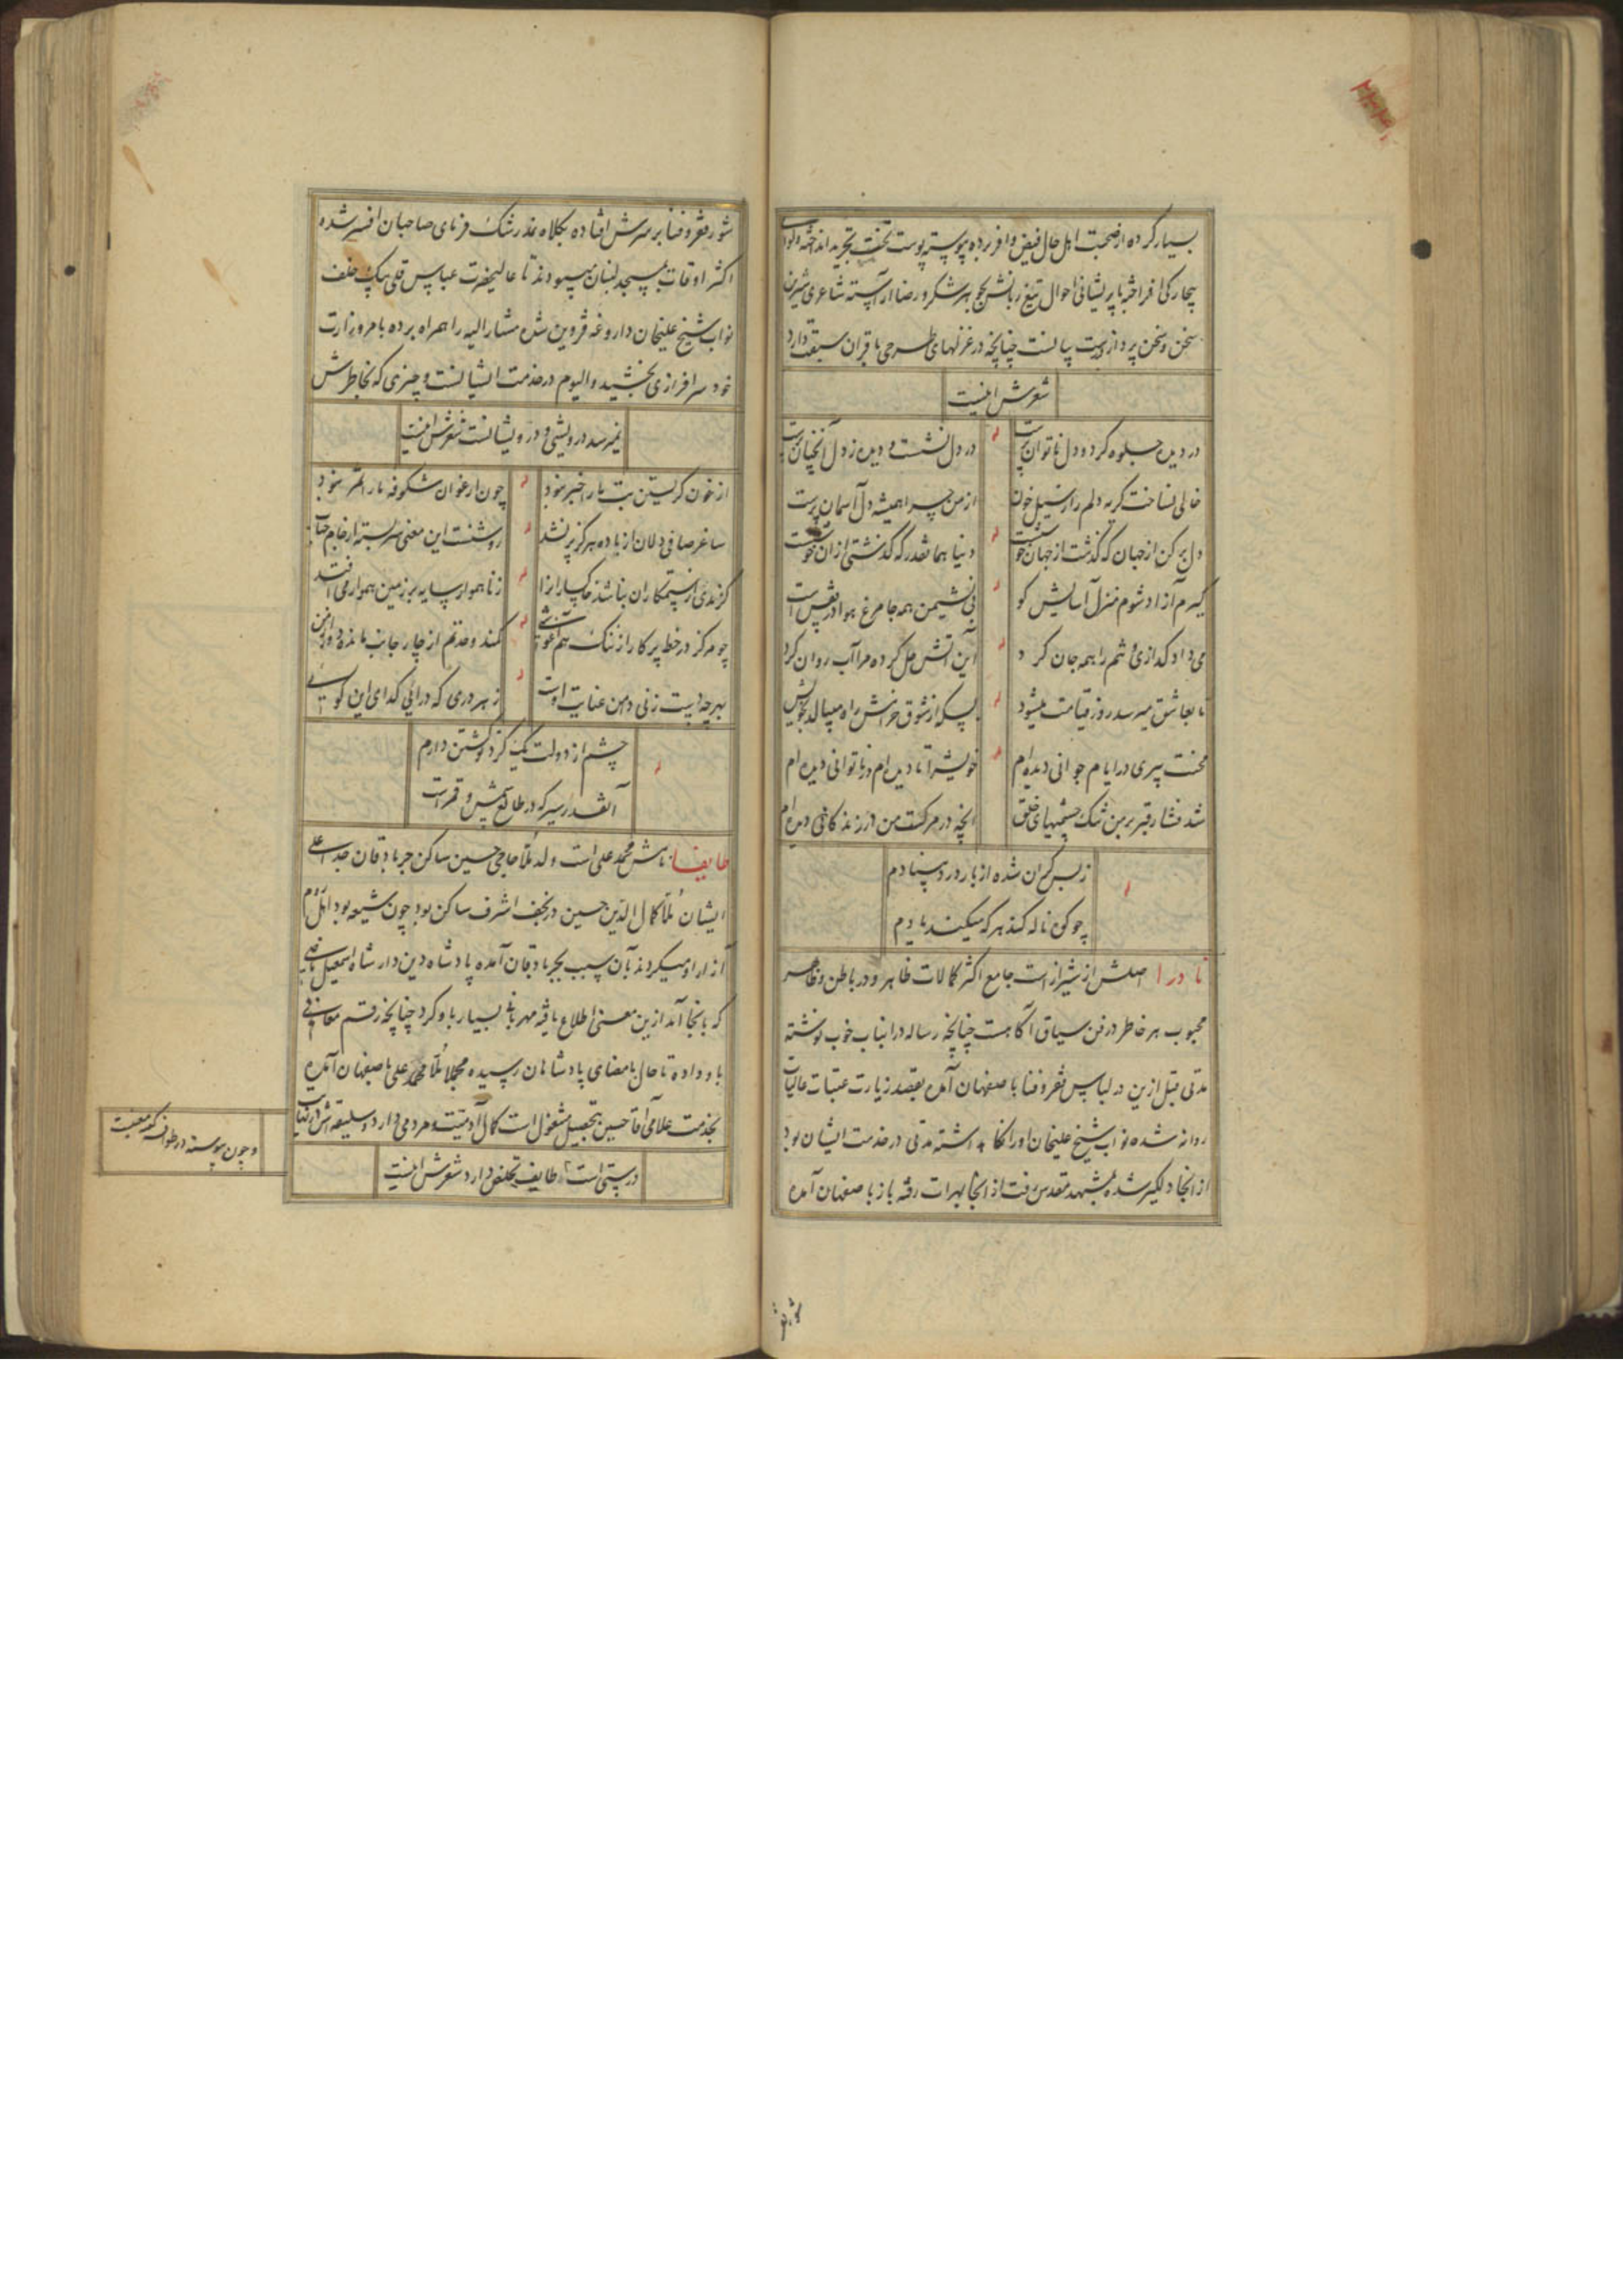 بسیار کرده از صحبت اهل حال فیض وافر برده پیوسته پوست تخت تجرید انداخته ولوای
بیچارگی افراخته با پریشانی احوال تیغ زبانش بجوهر شکر و رضا آراسته شاعری شیرین
سخن و سخن پرداز درست بیانست چنانچه در غزلهای طرحی باقران سبقت دارد
شعرش اینست
در دیده جلوه کرد و دل ناتوان پرست
در دل نشست و دیده ز دل آنچنان پرست
خالی نساخت گریه دلم را ز سیل خون
از من چرا همیشه دل آسمان پرست
دل بر کن از جهان که گذشت از جهان خوشست
دنیا همانقدر که گذشتی از آن خوشست
گیرم آزاد شوم منزل آسایش کو
بی نشیمن همه جا مرغ هوا در قفس است
می داد گدازی تنم را همه جان کرد
این آتش حل کرده مرا آب روان کرد
تا بعاشق میرسد روز قیامت میشود
بسکه از شوق خرامش راه میبالد بخویش
محنت پیری در ایام جوانی دیده ام
خویش را تا دیده ام در ناتوانی دیده ام
شد فشار قبر بر من تنگ چشمیهای خلق
آنچه در مرگست من در زندگانی دیده ام
ز بس گران شده از بار درد بنیادم
چو کوه ناله کند هر که میکند یادم
نادرا اصلش از شیراز است جامع اکثر کمالات ظاهر و در باطن و ظاهر
محبوب هر خاطر در فن سیاق آگاهست چنانچه رساله در اینباب خوب نوشته
مدتی قبل ازین در لباس فقر و فنا باصفهان آمده بقصد زیارت عتبات عالیات
روانه شده نواب شیخ علیخان او را نگاه داشته مدتی در خدمت ایشان بود
از انجا دلگیر شده بمشهد مقدس رفت از انجا بهرات رفته باز باصفهان آمده
شور فقر و فنا بر سرش افتاده بکلاه نمد رشک فرمای صاحبان افسر شده
اکثر اوقات بمسجد لبنان میبودند تا عالیحضرت عباس قلی بیک خلف
نواب شیخ علیخان داروغه قزوین شده مشار الیه را همراه برده بامر وزارت
خود سرافرازی بخشید والیوم در خدمت ایشانست و چیزی که بخاطرش
نمیرسد درویشی و درویشانست شعرش اینست
از خون گریستن بت ما را خبر نبود
چون ارغوان شکوفه ما را ثمر نبود
ساغر صافی دلان از باده هرگز پر نشد
روشنست این معنی سربسته از جام حباب
گزندی از ستمکاران نباشد خاکساران را
ز ناهموار سایه بر زمین هموار می افتد
چو مرکز در خط پرکار از تنگ هم آغوشی
کند وحدتم از چار جانب مانده در دامن
بهر چه دست زنی دامن عنایت اوست
ز هر دری که در آئی گدای این کوئی
چشم از دولت یک گرده نوشتن دارم
آنقدر سیر که در طالع شمس و قمر است
طایفا نامش محمد علی است ولد ملا حاجی حسین ساکن جرباذقان جد اعلی
ایشان ملا کمال الدین حسین در نجف اشرف ساکن بود چون شیعه بود اهل روم
آزار او میکردند بآن سبب بجرباذقان آمده پادشاه دین دار شاه اسمعیل ماضی
که بانجا آمد ازین معنی اطلاع یافته مهربانی بسیار باو کرد چنانچه رقم معافی
باو داده تا حال بامضای پادشاهان رسیده مجملا ملا محمد علی باصفهان آمده
بخدمت علامی آقا حسین بتحصیل مشغول است کمال آدمیت و مردمی دارد و سلیقه اش در اینباب
درستی است طایف تخلص دارد شعرش اینست
و چون پیوسته در طواف کعبه معنیست